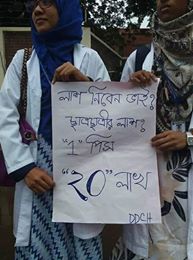 লাশ নিবেন ভাই?
ছাত্রছাত্রীর লাশ?
"১" পিস
"২০" লাখ
DDCH